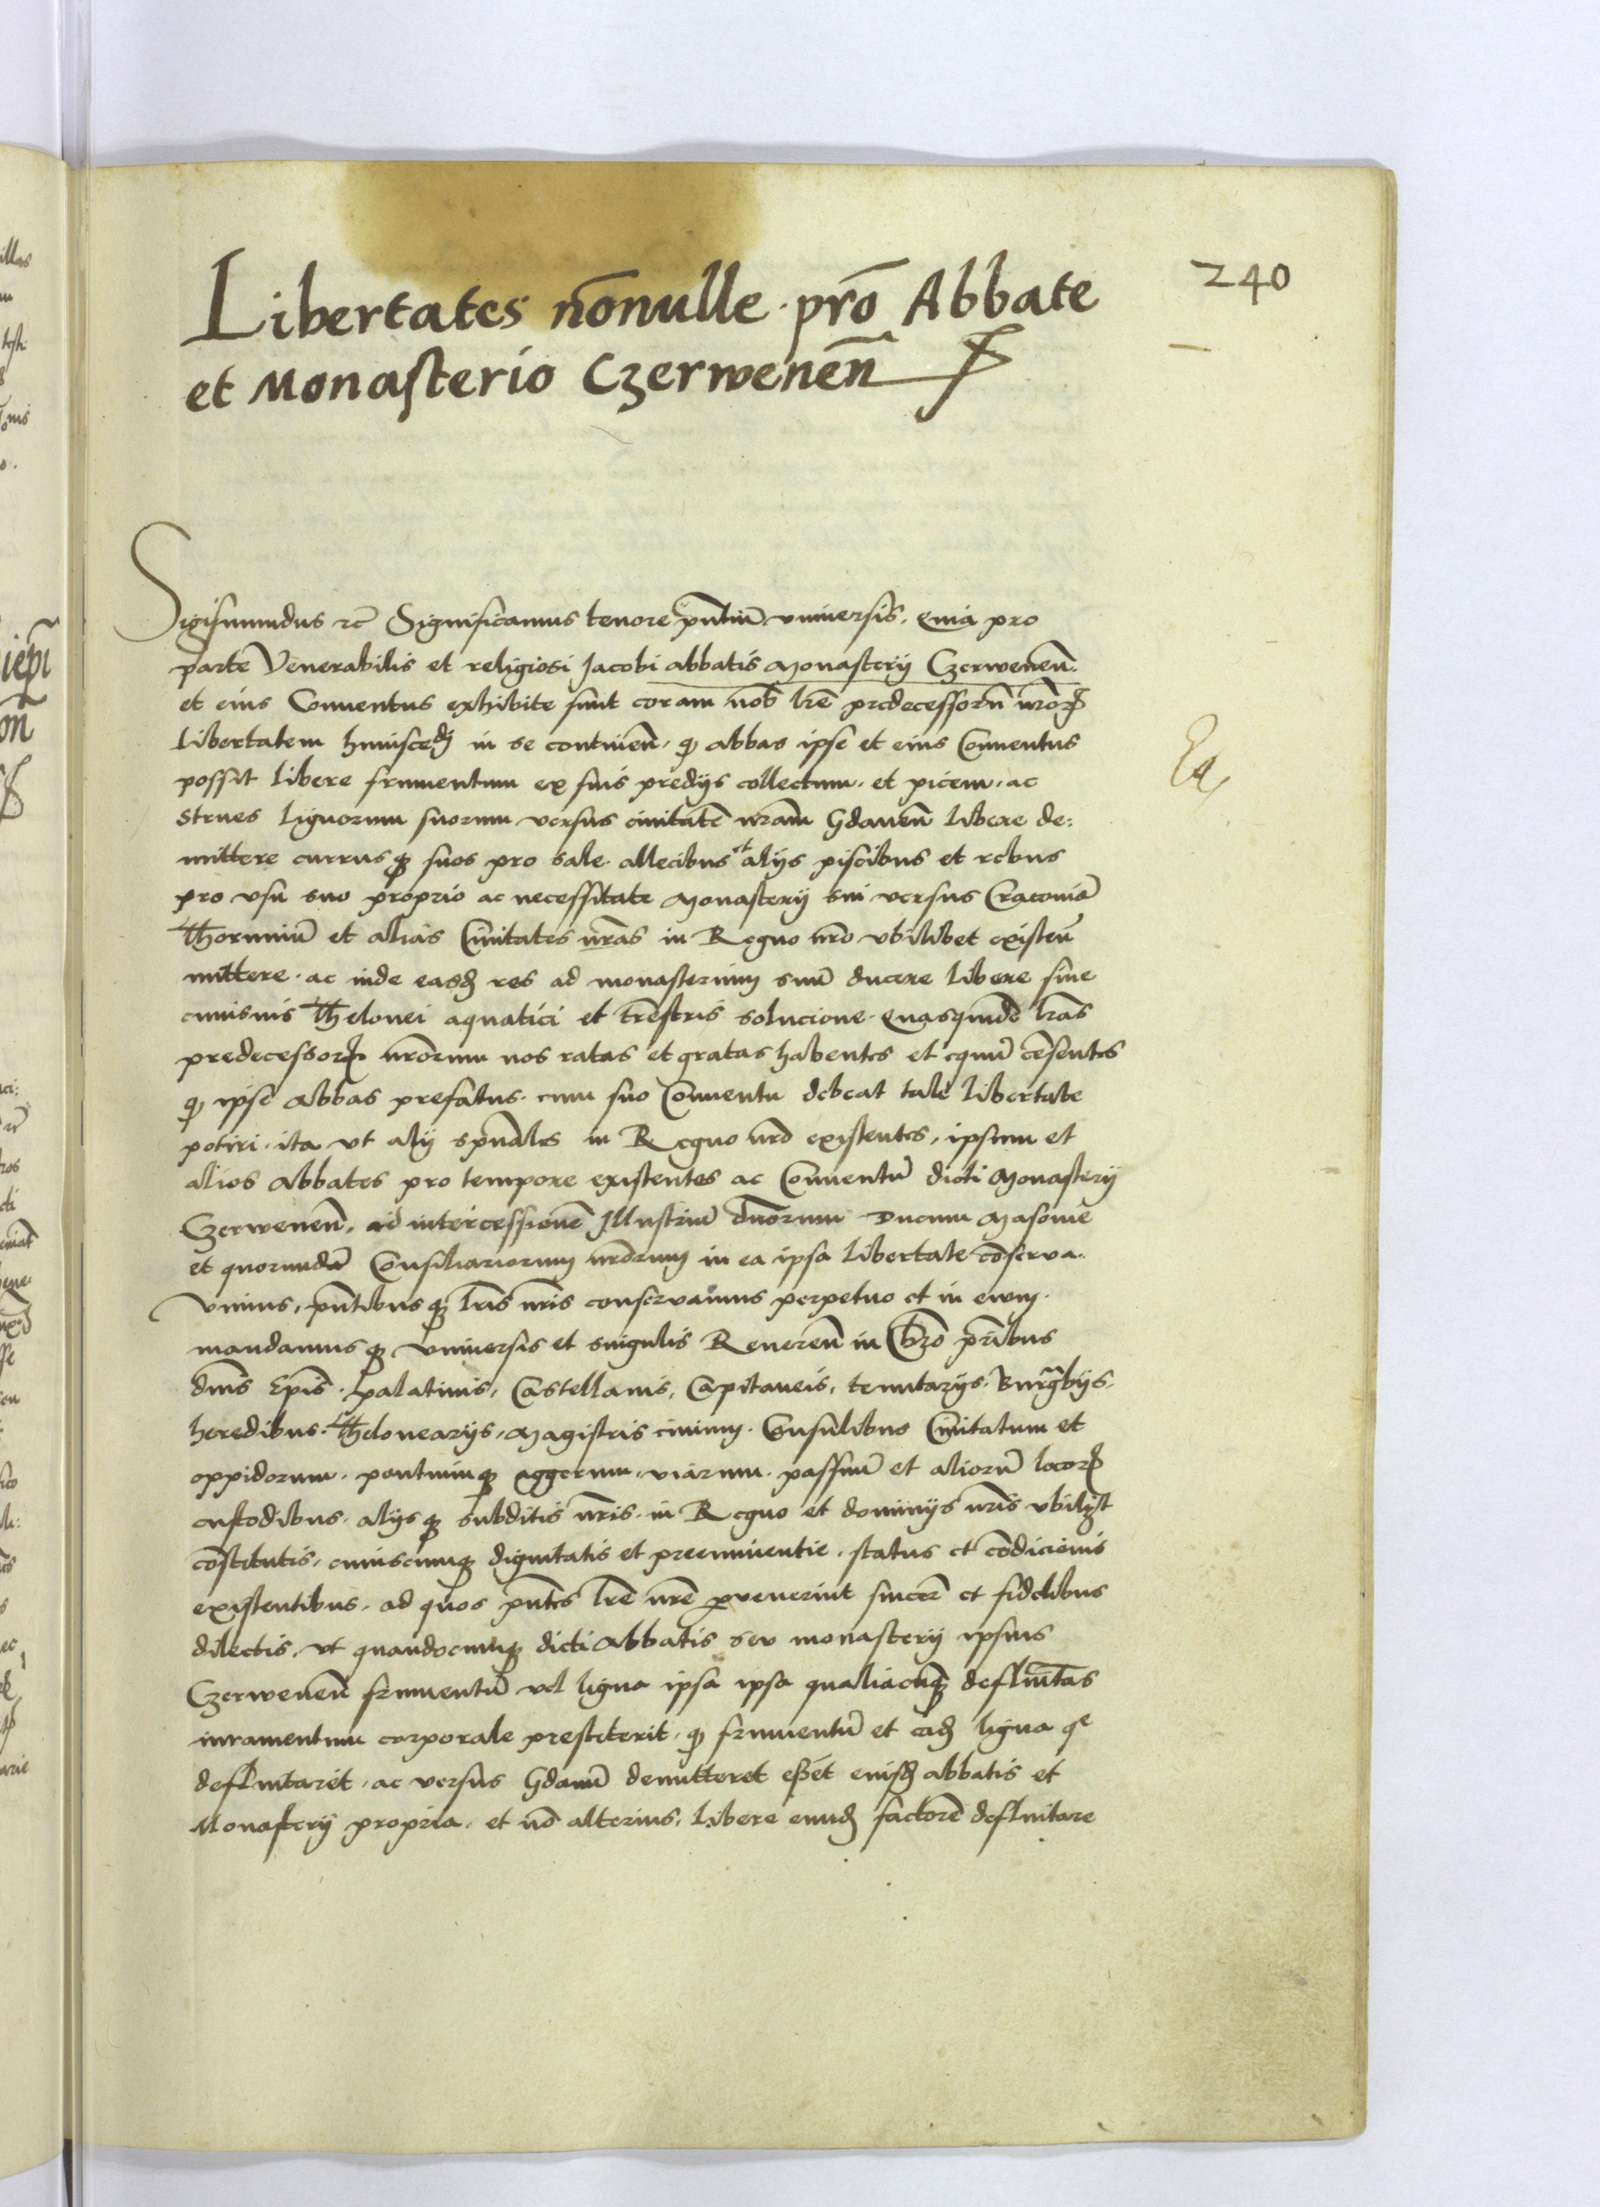 240
Libertates nōnulle pro Abbate
et Monasterio Czerwenen̄
Sigismundus rc̄ Significamus tenore pn̄tiū vniuersis, quia pro
parte Venerabilis et religiosi Jacobi abbatis Monasterij Czerwenen̄.
et eius Conuentus exhibite sunt coram nob lr̄e predecessorū nr̄oꝝ
Libertatem huiuscedj in se continen̄, ꝙ abbas ipse et eius Conuentus
possit libere frumentum ex suis predijs collectum, et picem, ac
strues lignorum suorum versus ciuitatē nr̄am Gdanen̄ libere de:
mittere currusqꝫ suos pro sale allecibus et alijs piscibus et rebus
pro vsu suo proprio ac necessitate Monasterij sui versus Cracouiā
Thoruniū et alias Ciuitates nr̄as in Regno nr̄o vbilibet existen̄
mittere, ac inde easdꝫ res ad monasterium suū ducere libere sine
cuiusuis Thelonei aquatici et trēstris solucione. Quasquidē lr̄as
predecessoꝝ nr̄orum nos ratas et gratas habentes et equū cēsentes
ꝙ ipse Abbas prefatus cum suo Conuentu debeat tale libertate
potiri, ita vt alij spūales in Regno nr̄o existentes, ipsum et
alios Abbates pro tempore existentes ac Conuentū dicti Monasterij
Czerwenen̄, ad intercessionē Illustriū dn̄orum Ducum Masouie
et quorundā Consiliariorum nr̄orum in ea ipsa libertate cōserua.
vimus, pn̄tibusqꝫ lr̄is nr̄is conseruamus perpetuo et in euum.
mandamusqꝫ vniuersis et singulis Reueren̄ in Chr̄o pr̄ibus
dn̄is Ep̄is, palatinis, Castellanis, Capitaneis, tenutarijs, Burgrabijs,
heredibus, Thelonearijs, Magistris ciuium, Consulibus Ciuitatum et
oppidorum, pontiumqꝫ aggerum, viarum, passuū et aliorū locoꝝ
custodibus, alijsqꝫ subditis nr̄is in Regno et dominijs nr̄is vbilꝫt
cōstitutis, cuiuscumqꝫ dignitatis et preeminentie, status et cōdicionis
existentibus, ad quos pn̄tes lr̄e nr̄e ꝑuenerint sincere et fidelibus
dilectis, vt quandocumqꝫ dicti Abbatis seu monasterij ipsius
Czerwenen̄ frumentū vel ligna ipsa ipsa qualiacūqꝫ defluitās
iuramentum corporale prestiterit, ꝙ frumentū et eadꝫ ligna qe
defluitaret, ac versus Gdanū demitteret esset eiusdꝫ abbatis et
Monasterij propria, et nō alterius, libere eundꝫ factorē defluitare